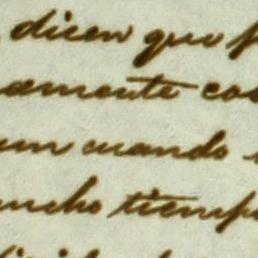 dicen que
amente cos
un cuando
ucho tiemp